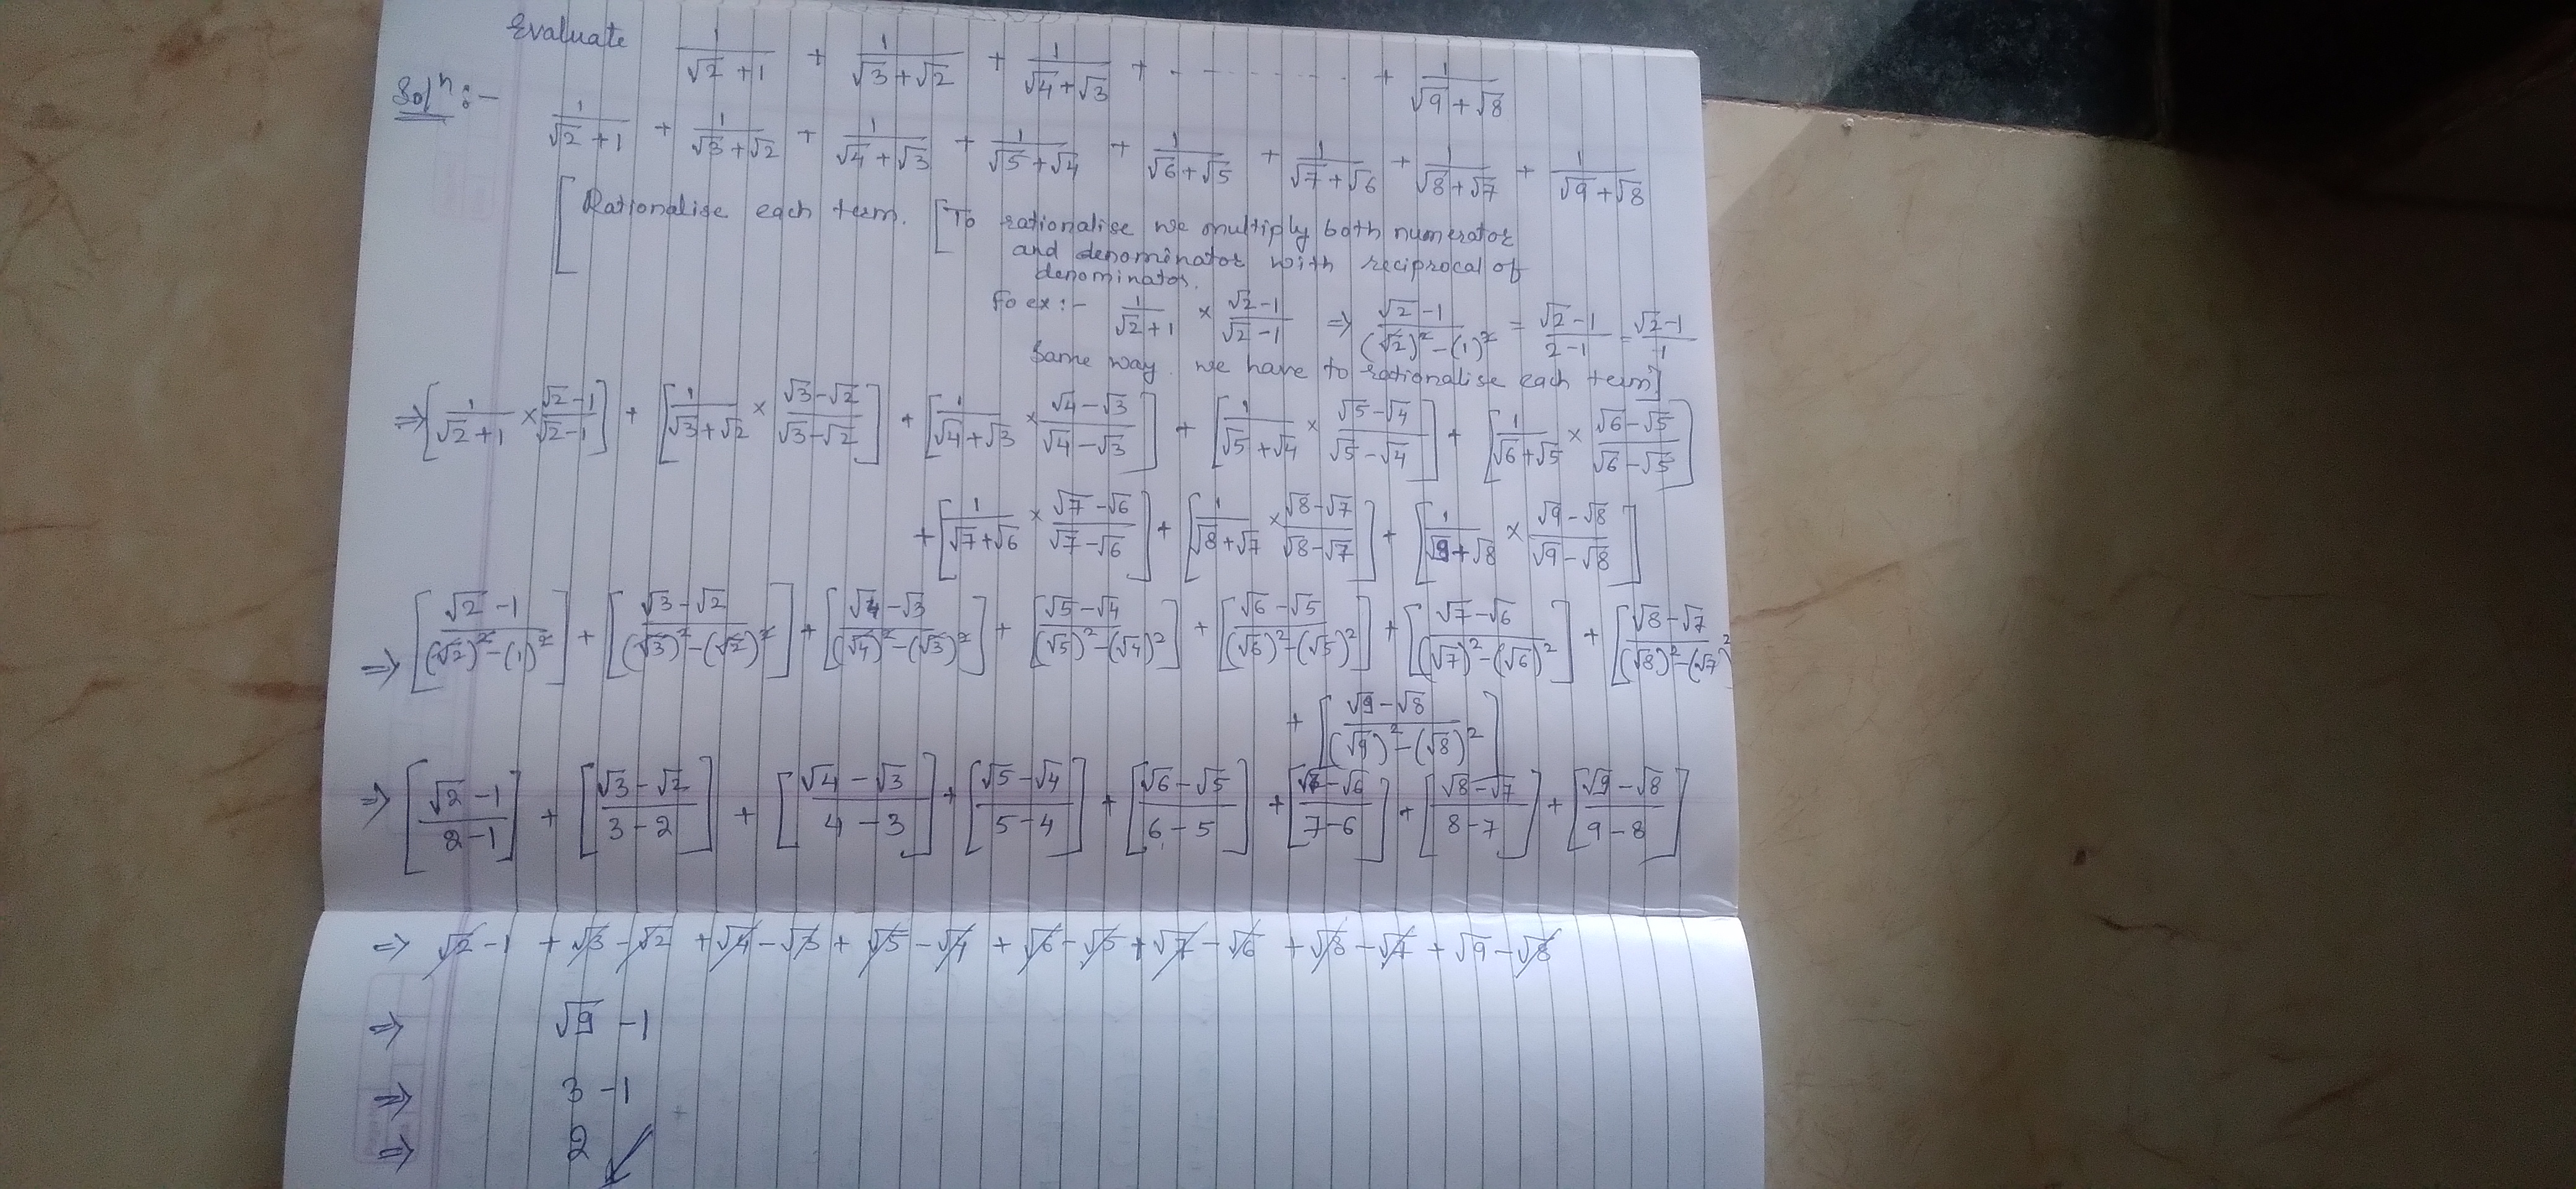 Evaluate 1/(√2+1) + 1/(√3+√2) + 1/(√4+√3) + - - - - - - - + 1/(√9+√8)
Solⁿ:- 1/(√2+1) + 1/(√3+√2) + 1/(√4+√3) + 1/(√5+√4) + 1/(√6+√5) + 1/(√7+√6) + 1/(√8+√7) + 1/(√9+√8)
[Rationalise each term. [To rationalise we multiply both numerator
and denominator with reciprocal of
denominator.
Fo ex:- 1/(√2+1) × (√2-1)/(√2-1) ⇒ (√2-1)/((√2)²-(1)²) = (√2-1)/(2-1) = (√2-1)/1
Same way. we have to rationalise each term]
⇒ [1/(√2+1) × (√2-1)/(√2-1)] + [1/(√3+√2) × (√3-√2)/(√3-√2)] + [1/(√4+√3) × (√4-√3)/(√4-√3)] + [1/(√5+√4) × (√5-√4)/(√5-√4)] + [1/(√6+√5) × (√6-√5)/(√6-√5)]
+ [1/(√7+√6) × (√7-√6)/(√7-√6)] + [1/(√8+√7) × (√8-√7)/(√8-√7)] + [1/(√9+√8) × (√9-√8)/(√9-√8)]
⇒ [(√2-1)/((√2)²-(1)²)] + [(√3-√2)/((√3)²-(√2)²)] + [(√4-√3)/((√4)²-(√3)²)] + [(√5-√4)/((√5)²-(√4)²)] + [(√6-√5)/((√6)²-(√5)²)] + [(√7-√6)/((√7)²-(√6)²)] + [(√8-√7)/((√8)²-(√7)²
+ [(√9-√8)/((√9)²-(√8)²)]
⇒ [(√2-1)/(2-1)] + [(√3-√2)/(3-2)] + [(√4-√3)/(4-3)] + [(√5-√4)/(5-4)] + [(√6-√5)/(6-5)] + [(√7-√6)/(7-6)] + [(√8-√7)/(8-7)] + [(√9-√8)/(9-8)]
⇒ √2-1 + √3-√2 + √4-√3 + √5-√4 + √6-√5 + √7-√6 + √8-√7 + √9-√8
⇒ √9-1
⇒ 3-1
⇒ 2